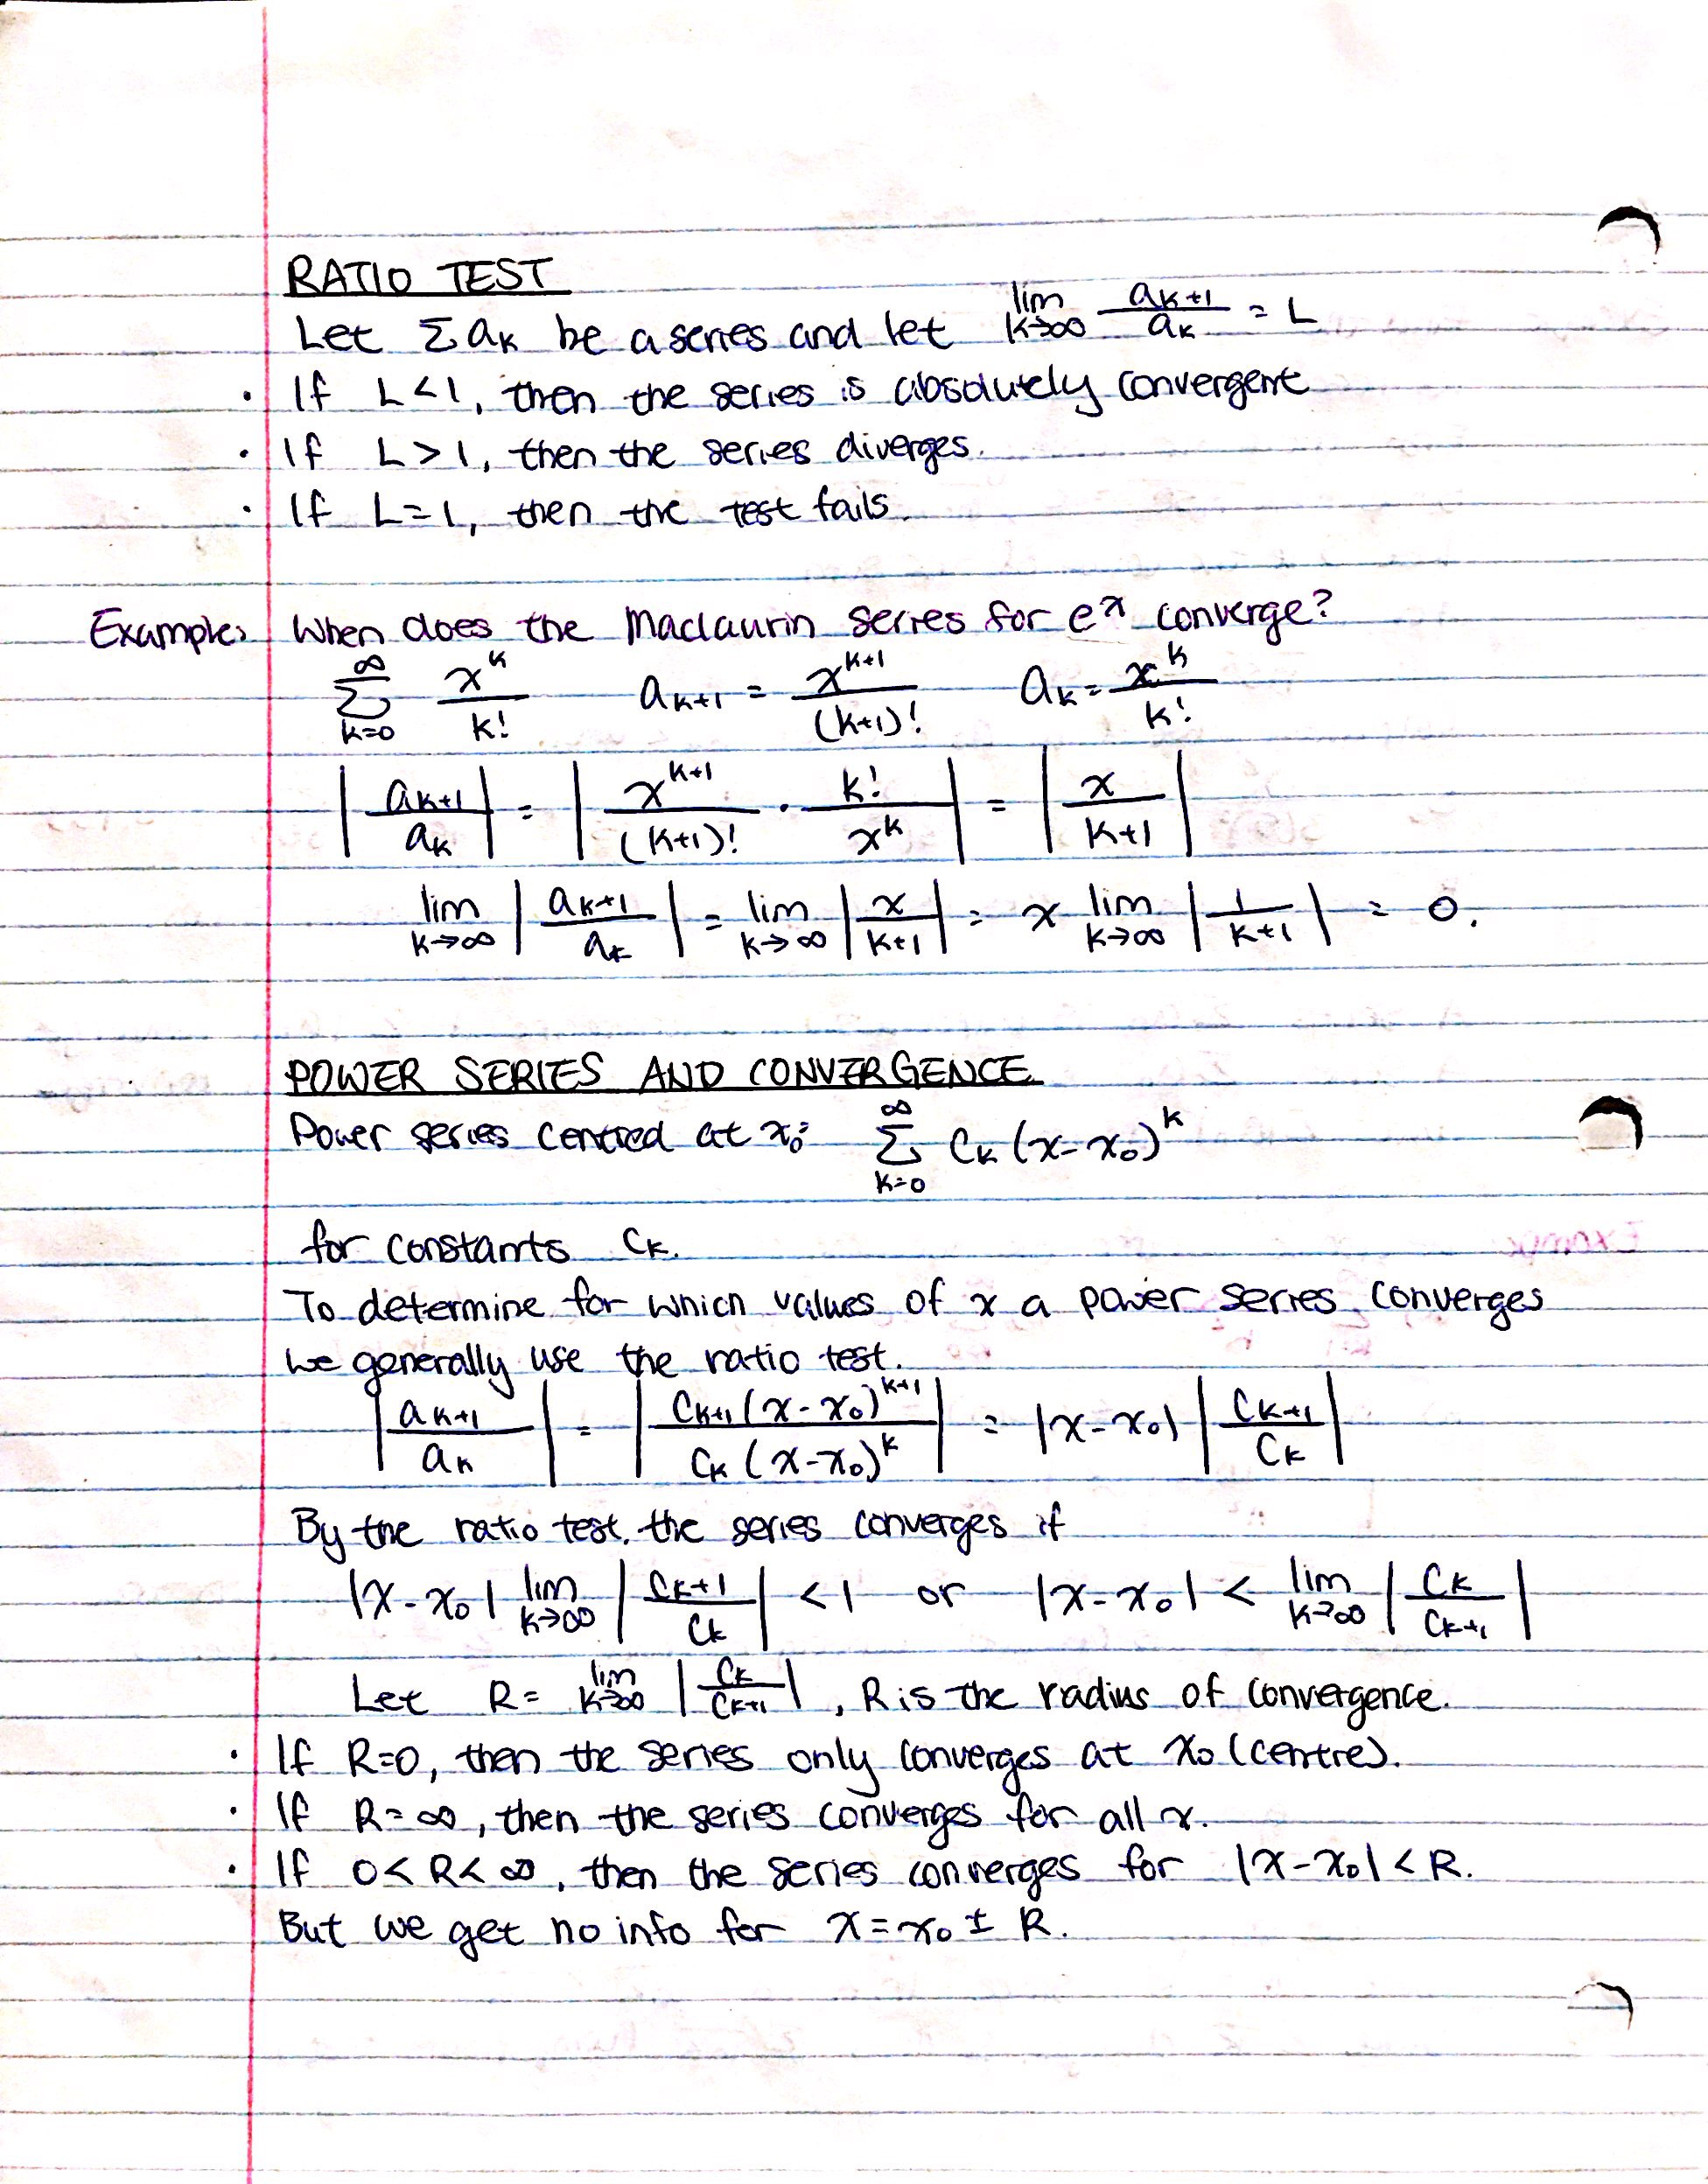 RATIO TEST
Let Σ aₖ be a series and let lim k→∞ aₖ₊₁/aₖ = L
· If L < 1, then the series is absolutely convergent
· If L > 1, then the series diverges.
· If L = 1, then the test fails.
Example: When does the Maclaurin series for eˣ converge?
∞ Σ k=0 xᵏ/k! aₖ₊₁ = xᵏ⁺¹/(k+1)! aₖ = xᵏ/k!
|aₖ₊₁/aₖ| = |xᵏ⁺¹/(k+1)! · k!/xᵏ| = |x/k+1|
lim k→∞ |aₖ₊₁/aₖ| = lim k→∞ |x/k+1| = x lim k→∞ |1/k+1| = 0.
POWER SERIES AND CONVERGENCE
Power series centred at x₀: ∞ Σ k=0 Cₖ (x-x₀)ᵏ
for constants Cₖ.
To determine for which values of x a power series converges
we generally use the ratio test.
|aₖ₊₁/aₖ| = |Cₖ₊₁(x-x₀)ᵏ⁺¹/Cₖ(x-x₀)ᵏ| = |x-x₀| |Cₖ₊₁/Cₖ|
By the ratio test, the series converges if
|x-x₀| lim k→∞ |Cₖ₊₁/Cₖ| < 1 or |x-x₀| < lim k→∞ |Cₖ/Cₖ₊₁|
Let R = lim k→∞ |Cₖ/Cₖ₊₁|, R is the radius of convergence.
· If R=0, then the series only converges at x₀ (centre).
· If R = ∞, then the series converges for all x.
· If 0 < R < ∞, then the series converges for |x-x₀| < R.
But we get no info for x = x₀ ± R.